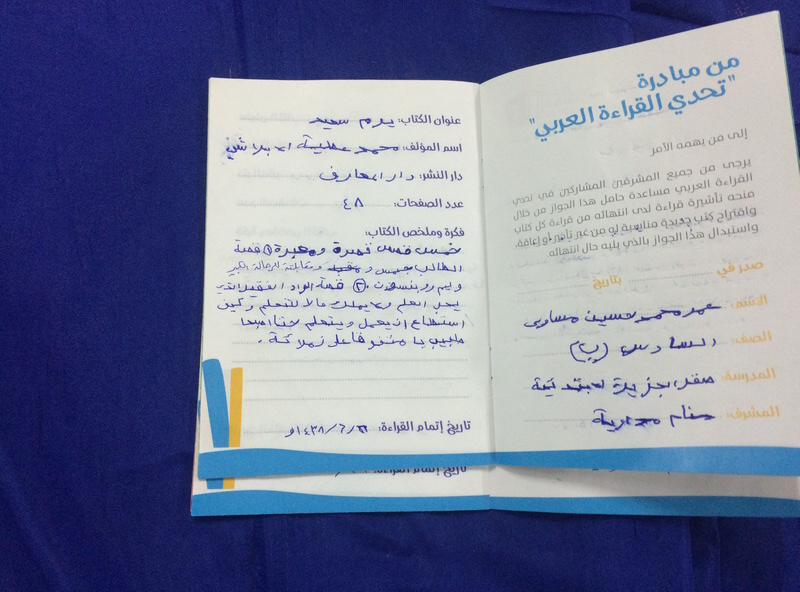 من مبادرة
"تحدي القراءة العربي"
إلى من يهمه الأمر
يرجى من جميع المشرفين المشاركين في تحدي
القراءة العربي مساعدة حامل هذا الجواز من خلال
منحه تأشيرة قراءة لدى انتهائه من قراءة كل كتاب
واقتراح كتب جديدة مناسبة له من غير تأخير أو إعاقة،
واستبدال هذا الجواز بالذي يليه حال انتهائه.
صدر في بتاريخ
الاسم: عمر محمد حسين مساوى
الصف: السادس (ب)
المدرسة:
المشرف:
عنوان الكتاب: يوم سعيد
اسم المؤلف: محمد عطية الابراشي
دار النشر: دار المعارف
عدد الصفحات: ٤٨
فكرة وملخص الكتاب:
خمس قصص قصيرة ومعبرة ① قصة
الطالب جيمس و ومقابلته للرحالة الكبير
وليم روبنسون. ② قصة الولد الفقير الذي
يحب العلم ولا يملك مالا للتعلم وكيف
استطاع ان يعمل ويتعلم حتا اصبحا
طبيب يا متفوقا على زملائه.
تاريخ إتمام القراءة: ١٤٣٨/٦/ هـ
تاريخ إتمام القراءة: